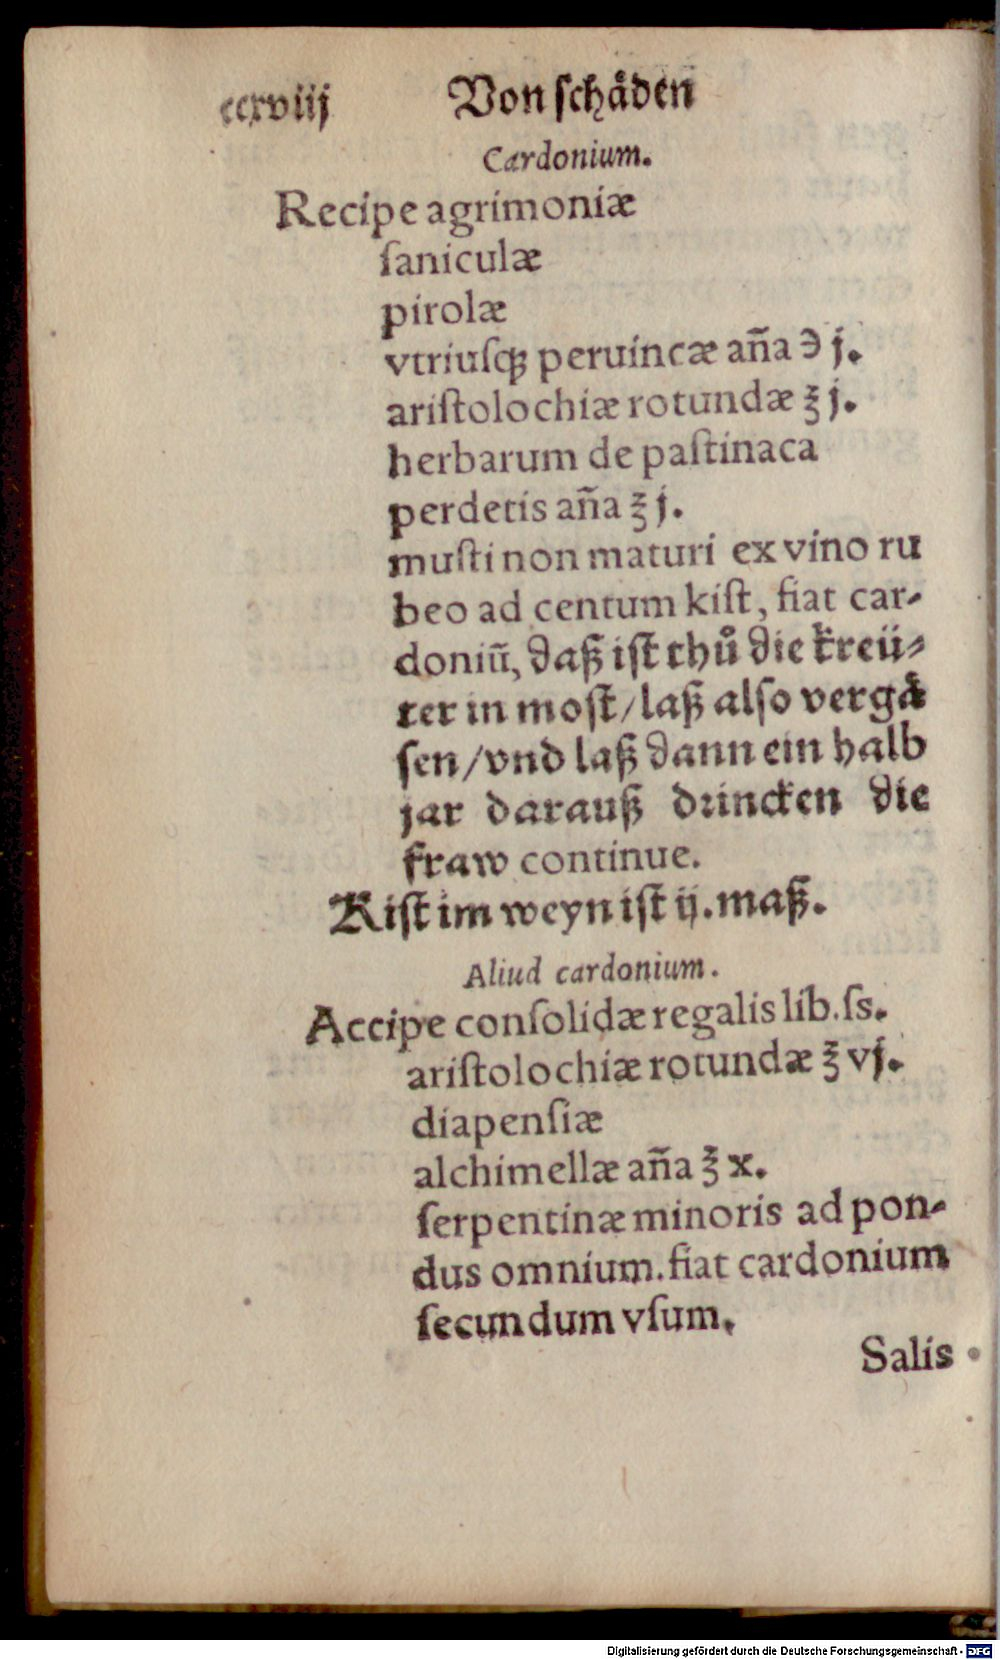 ccxviij Von schåden
Cardonium.
Recipe agrimoniæ
ſaniculæ
pirolæ
vtriuſqꝫ peruincæ an̄a ℈ j.
ariſtolochiæ rotundæ ℥ j.
herbarum de paſtinaca
perdetis an̄a ℥ j.
muſti non maturi ex vino ru
beo ad centum kiſt, fiat car-
doniū, daß iſt thů die kreü⸗
ter in moſt/laß alſo vergå
ſen/vnd laß dann ein halb
jar darauß drincken die
fraw continue.
Kiſt im weyn iſt ij. maß.
Aliud cardonium.
Accipe conſolidæ regalis lib. ſs.
ariſtolochiæ rotundæ ℥ vj.
diapenſiæ
alchimellæ an̄a ℥ x.
ſerpentinæ minoris ad pon-
dus omnium. fiat cardonium
ſecundum vſum.
Salis
Digitalisierung gefördert durch die Deutsche Forschungsgemeinschaft - DFG